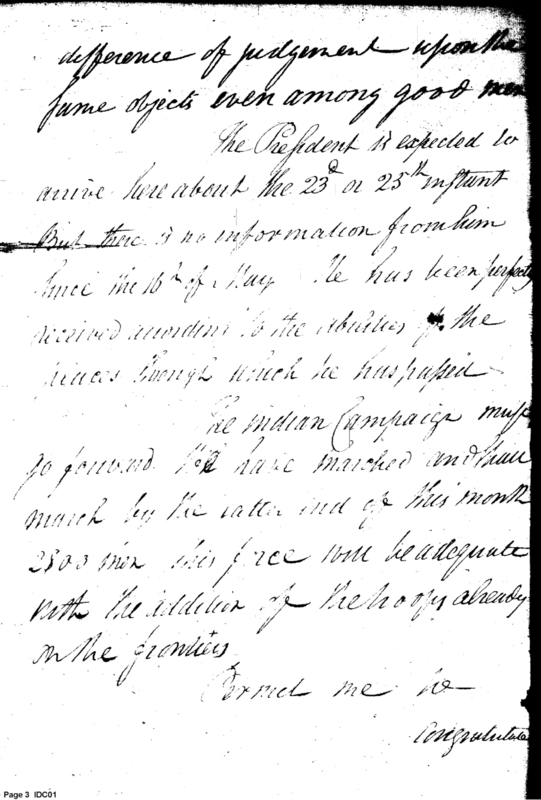 difference of judgement upon the
same objects even among good men
The President is expected to
arrive here about the 23d or 25th instant
But there is no information from him
since the 16th of May. He has been perfectly
received according to the abilities of the
places though which he has passed
The Indian Campaign must
go forward. We have marched and shall
march by the latter end of this month
2500 men this force will be adequate
with the addition of the troops already
on the frontiers
Permit me to
congratulate
Page 3 IDC01